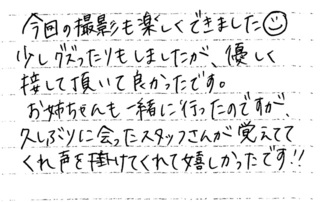 今回の撮影も楽しくできました☺
少しグズったりもしましたが、優しく
接して頂いて良かったです。
お姉ちゃんも一緒に行ったのですが、
久しぶりに会ったスタッフさんが覚えてて
くれ声を掛けてくれて嬉しかったです!!